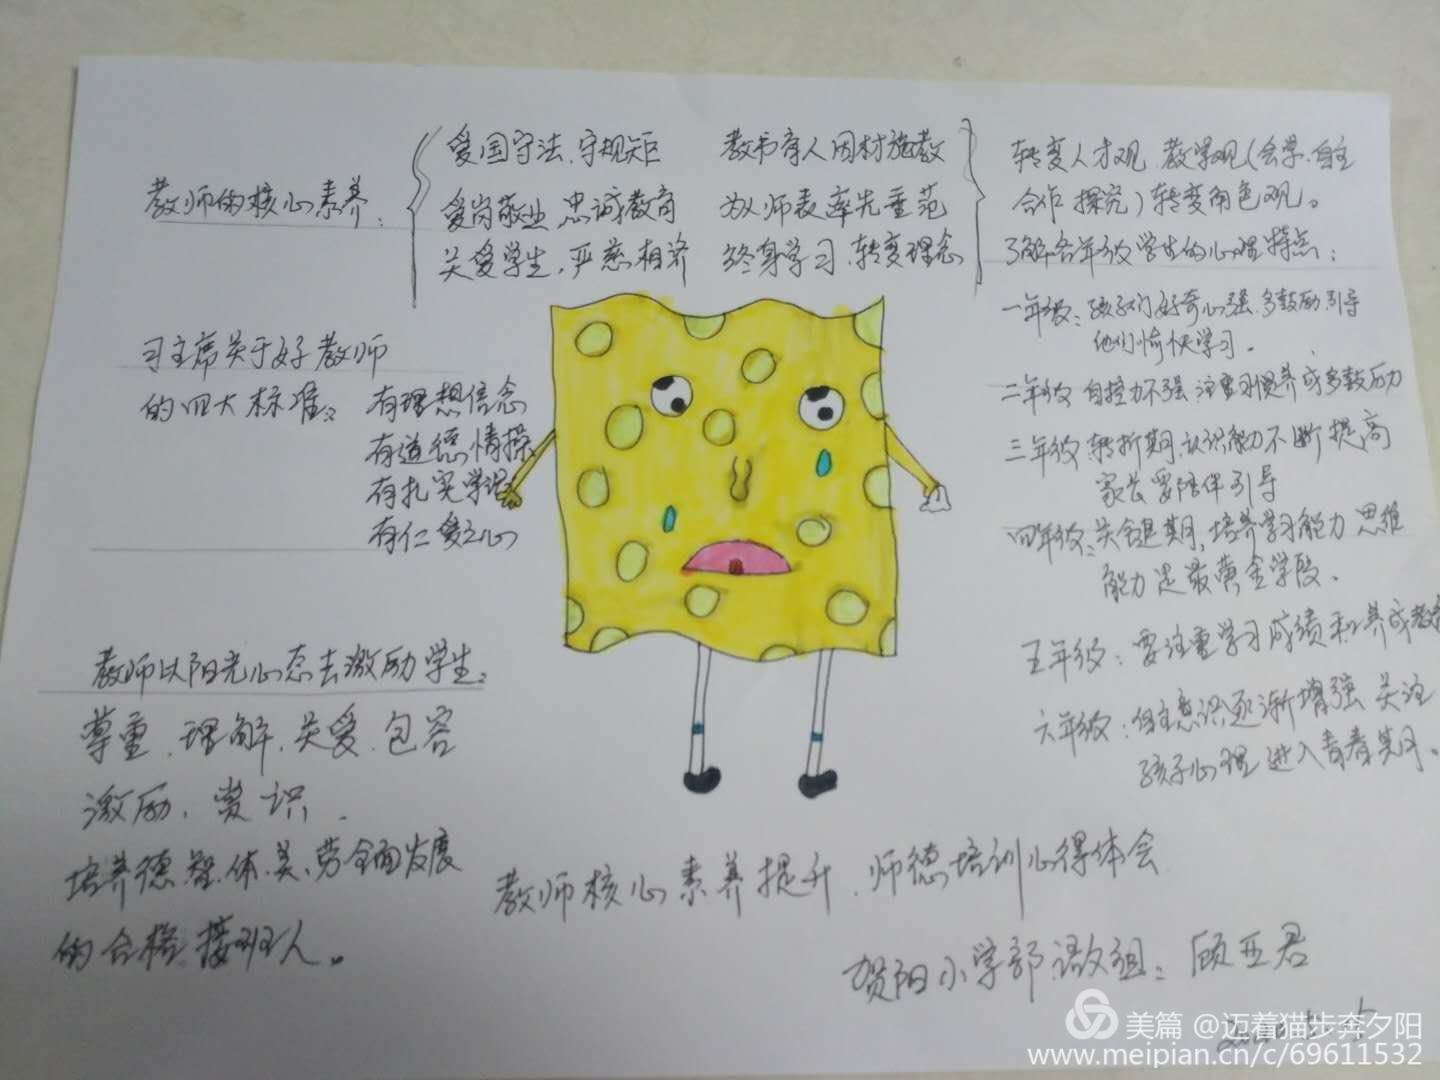 教师的核心素养:
爱国守法、守规矩
爱岗敬业 忠诚教育
关爱学生,严慈相济
教书育人因材施教
为人师表率先垂范
终身学习、转变理念
转变人才观 教学观(会学、自主
合作 探究)转变角色观。
了解各年级学生的心理特点:
一年级:孩子们好奇心强、多鼓励、引导
他们愉快学习。
二年级 自控力不强 注重习惯养成多鼓励
三年级 转折期、认识能力不断提高
家长要陪伴引导
四年级:关键期,培养学习能力 思维
能力是最黄金学段。
五年级:要注重学习成绩和养成教
六年级:自主意识逐渐增强 关注
孩子心理 进入青春期。
习主席关于好教师
的四大标准:
有理想信念
有道德情操
有扎实学识
有仁爱之心
教师以阳光心态去激励学生:
尊重、理解、关爱、包容
激励、赏识.
培养德、智、体、美、劳全面发展
的合格接班人。
教师核心素养提升、师德培训心得体会
贺阳小学部语数组:顾亚君
美篇 @迈着猫步奔夕阳
www.meipian.cn/c/69611532